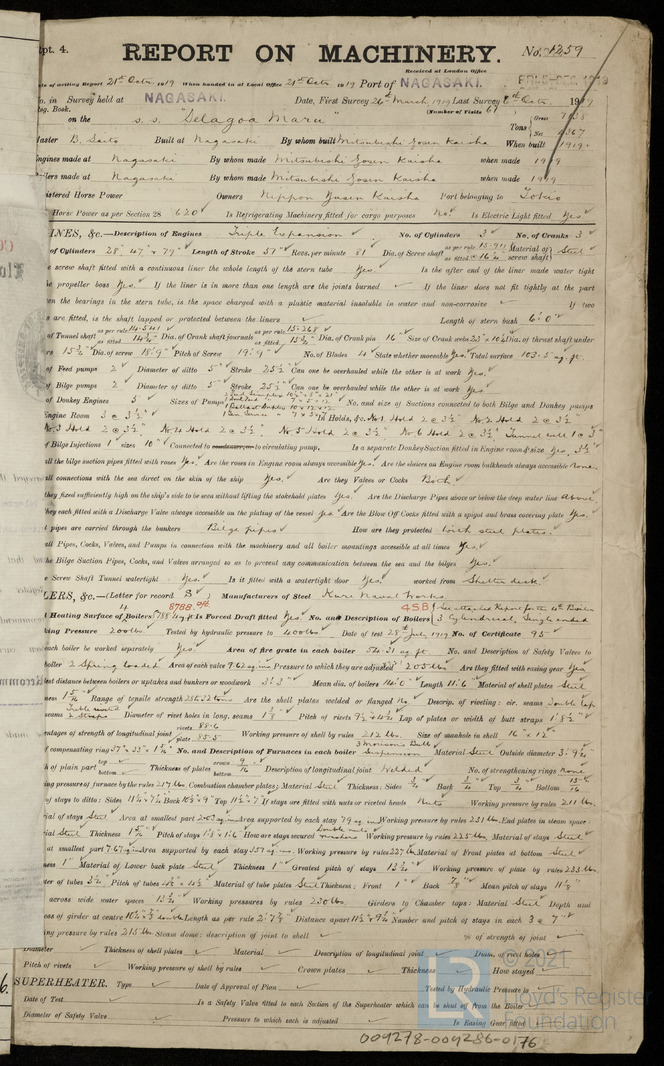 Rpt. 4. REPORT ON MACHINERY. No. 1259
Received at London Office
Date of writing Report 21st Octr. 1919 When handed in at Local Office 21st Octr 1919 Port of NAGASAKI.
No. in Survey held at NAGASAKI. Date, First Survey 26th March, 1919 Last Survey Octr. 1919
Reg. Book. (Number of Visits 67)
on the s. s. "Delagoa Maru" Tons { Gross Net
Master B. Saito Built at Nagasaki By whom built Mitsubishi Zosen Kaisha When built 1919.
Engines made at Nagasaki By whom made Mitsubishi Zosen Kaisha when made 1919
Boilers made at Nagasaki By whom made Mitsubishi Zosen Kaisha when made 1919
Registered Horse Power Owners Nippon Yusen Kaisha Port belonging to Tokio
Horse Power as per Section 28 620 Is Refrigerating Machinery fitted for cargo purposes No. Is Electric Light fitted Yes
INES, &c.—Description of Engines Triple Expansion No. of Cylinders 3 No. of Cranks 3
of Cylinders 28", 47" & 79" Length of Stroke 57" Revs. per minute 81 Dia. of Screw shaft as per rule 15.911 as fitted 16 Material of screw shaft Steel
e screw shaft fitted with a continuous liner the whole length of the stern tube Yes. Is the after end of the liner made water tight
he propeller boss Yes. If the liner is in more than one length are the joints burned If the liner does not fit tightly at the part
n the bearings in the stern tube, is the space charged with a plastic material insoluble in water and non-corrosive If two
s are fitted, is the shaft lapped or protected between the liners Length of stern bush 6'.0"
of Tunnel shaft as per rule 14.541 as fitted Dia. of Crank shaft journals as per rule 15.268 as fitted Dia. of Crank pin 16" Size of Crank webs Dia. of thrust shaft under
Dia. of screw 18'.9" Pitch of Screw 19'.9" No. of Blades 4 State whether moveable Yes. Total surface 103.5 sq. ft.
of Feed pumps 2 Diameter of ditto 5" Stroke 25½" Can one be overhauled while the other is at work Yes.
of Bilge pumps 2 Diameter of ditto 5" Stroke 25½" Can one be overhauled while the other is at work Yes.
of Donkey Engines 5 Sizes of Pumps No. and size of Suctions connected to both Bilge and Donkey pumps
Engine Room 3 @ 3½" In Holds, &c. No. 1 Hold 2 @ 3½" No. 2 Hold 2 @ 3½"
No. 3 Hold 2 @ 3½" No. 4 Hold 2 @ 3½" No. 5 Hold 2 @ 3½" No. 6 Hold 2 @ 3½" Tunnel well 1 @ 3"
of Bilge Injections 1 sizes 10" Connected to condenser, or to circulating pump. Is a separate Donkey Suction fitted in Engine room & size Yes, 3½"
all the bilge suction pipes fitted with roses Yes. Are the roses in Engine room always accessible Yes. Are the sluices on Engine room bulkheads always accessible none.
all connections with the sea direct on the skin of the ship Yes. Are they Valves or Cocks Both.
they fixed sufficiently high on the ship's side to be seen without lifting the stokehold plates Yes. Are the Discharge Pipes above or below the deep water line above
they each fitted with a Discharge Valve always accessible on the plating of the vessel Yes Are the Blow Off Cocks fitted with a spigot and brass covering plate Yes.
t pipes are carried through the bunkers Bilge pipes How are they protected With steel plates.
all Pipes, Cocks, Valves, and Pumps in connection with the machinery and all boiler mountings accessible at all times Yes.
the Bilge Suction Pipes, Cocks, and Valves arranged so as to prevent any communication between the sea and the bilges Yes.
e Screw Shaft Tunnel watertight Yes. Is it fitted with a watertight door Yes. worked from Shelter deck.
LERS, &c.—(Letter for record S) Manufacturers of Steel Kure Naval Works.
8788 sq ft 4SB See attached Report for the 4th Boiler
Heating Surface of Boilers Is Forced Draft fitted Yes No. and Description of Boilers 3 Cylindrical, Single ended
king Pressure 200 lbs Tested by hydraulic pressure to 400 lbs Date of test 28th July, 1919 No. of Certificate 95
each boiler be worked separately Yes. Area of fire grate in each boiler 54.31 sq. ft. No. and Description of Safety Valves to
boiler 2 Spring loaded Area of each valve 7.62 sq ins Pressure to which they are adjusted 205 lbs Are they fitted with easing gear Yes
est distance between boilers or uptakes and bunkers or woodwork 3'.3" Mean dia. of boilers 14'.0" Length 11'.6" Material of shell plates Steel
ness Range of tensile strength 28 to 32 tons Are the shell plates welded or flanged no Descrip. of riveting: cir. seams Double lap
seams Diameter of rivet holes in long. seams Pitch of rivets Lap of plates or width of butt straps 1'.8½"
entages of strength of longitudinal joint rivets 88.6 plate 85.5 Working pressure of shell by rules 212 lbs Size of manhole in shell 16" x 12"
f compensating ring No. and Description of Furnaces in each boiler 3 Morison's Bulb Suspension Material Steel Outside diameter
h of plain part top bottom Thickness of plates crown bottom Description of longitudinal joint Welded No. of strengthening rings none
ing pressure of furnace by the rules 217 lbs Combustion chamber plates: Material Steel Thickness: Sides Back Top Bottom
of stays to ditto: Sides Back Top If stays are fitted with nuts or riveted heads Nuts Working pressure by rules 211 lbs.
rial of stays Steel Area at smallest part 2.03 sq ins Area supported by each stay 79 sq ins Working pressure by rules 231 lbs. End plates in steam space:
rial Steel Thickness Pitch of stays How are stays secured Working pressure by rules 225 lbs Material of stays Steel
at smallest part 7.67 sq ins Area supported by each stay 357 sq ins. Working pressure by rules 227 lbs Material of Front plates at bottom Steel
ness 1" Material of Lower back plate Steel Thickness 1" Greatest pitch of stays 13½" Working pressure of plate by rules 233 lbs.
ter of tubes Pitch of tubes Material of tube plates Steel Thickness: Front 1" Back Mean pitch of stays
across wide water spaces Working pressures by rules 230 lbs. Girders to Chamber tops: Material Steel Depth and
ess of girder at centre Length as per rule Distance apart Number and pitch of stays in each 3 @ 7"
ing pressure by rules 215 lbs. Steam dome: description of joint to shell % of strength of joint
Diameter Thickness of shell plates Material Description of longitudinal joint Diam. of rivet holes
Pitch of rivets Working pressure of shell by rules Crown plates Thickness How stayed
SUPERHEATER. Type Date of Approval of Plan Tested by Hydraulic Pressure to
Date of Test Is a Safety Valve fitted to each Section of the Superheater which can be shut off from the Boiler
Diameter of Safety Valve Pressure to which each is adjusted Is Easing Gear fitted
© 2021
Lloyd's Register
Foundation
009278-009286-0176